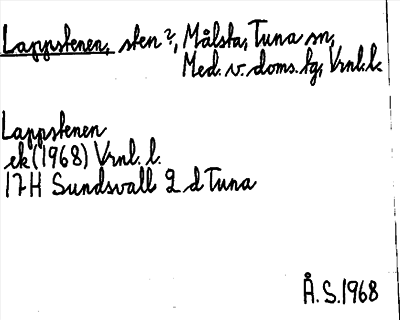 Lappstenen, sten?, Målsta, Tuna sn,
Med. v. doms. fg, Vrnl. l.
Lappstenen
ek (1968) Vrnl. l.
17H Sundsvall 2 d Tuna
Å.S. 1968